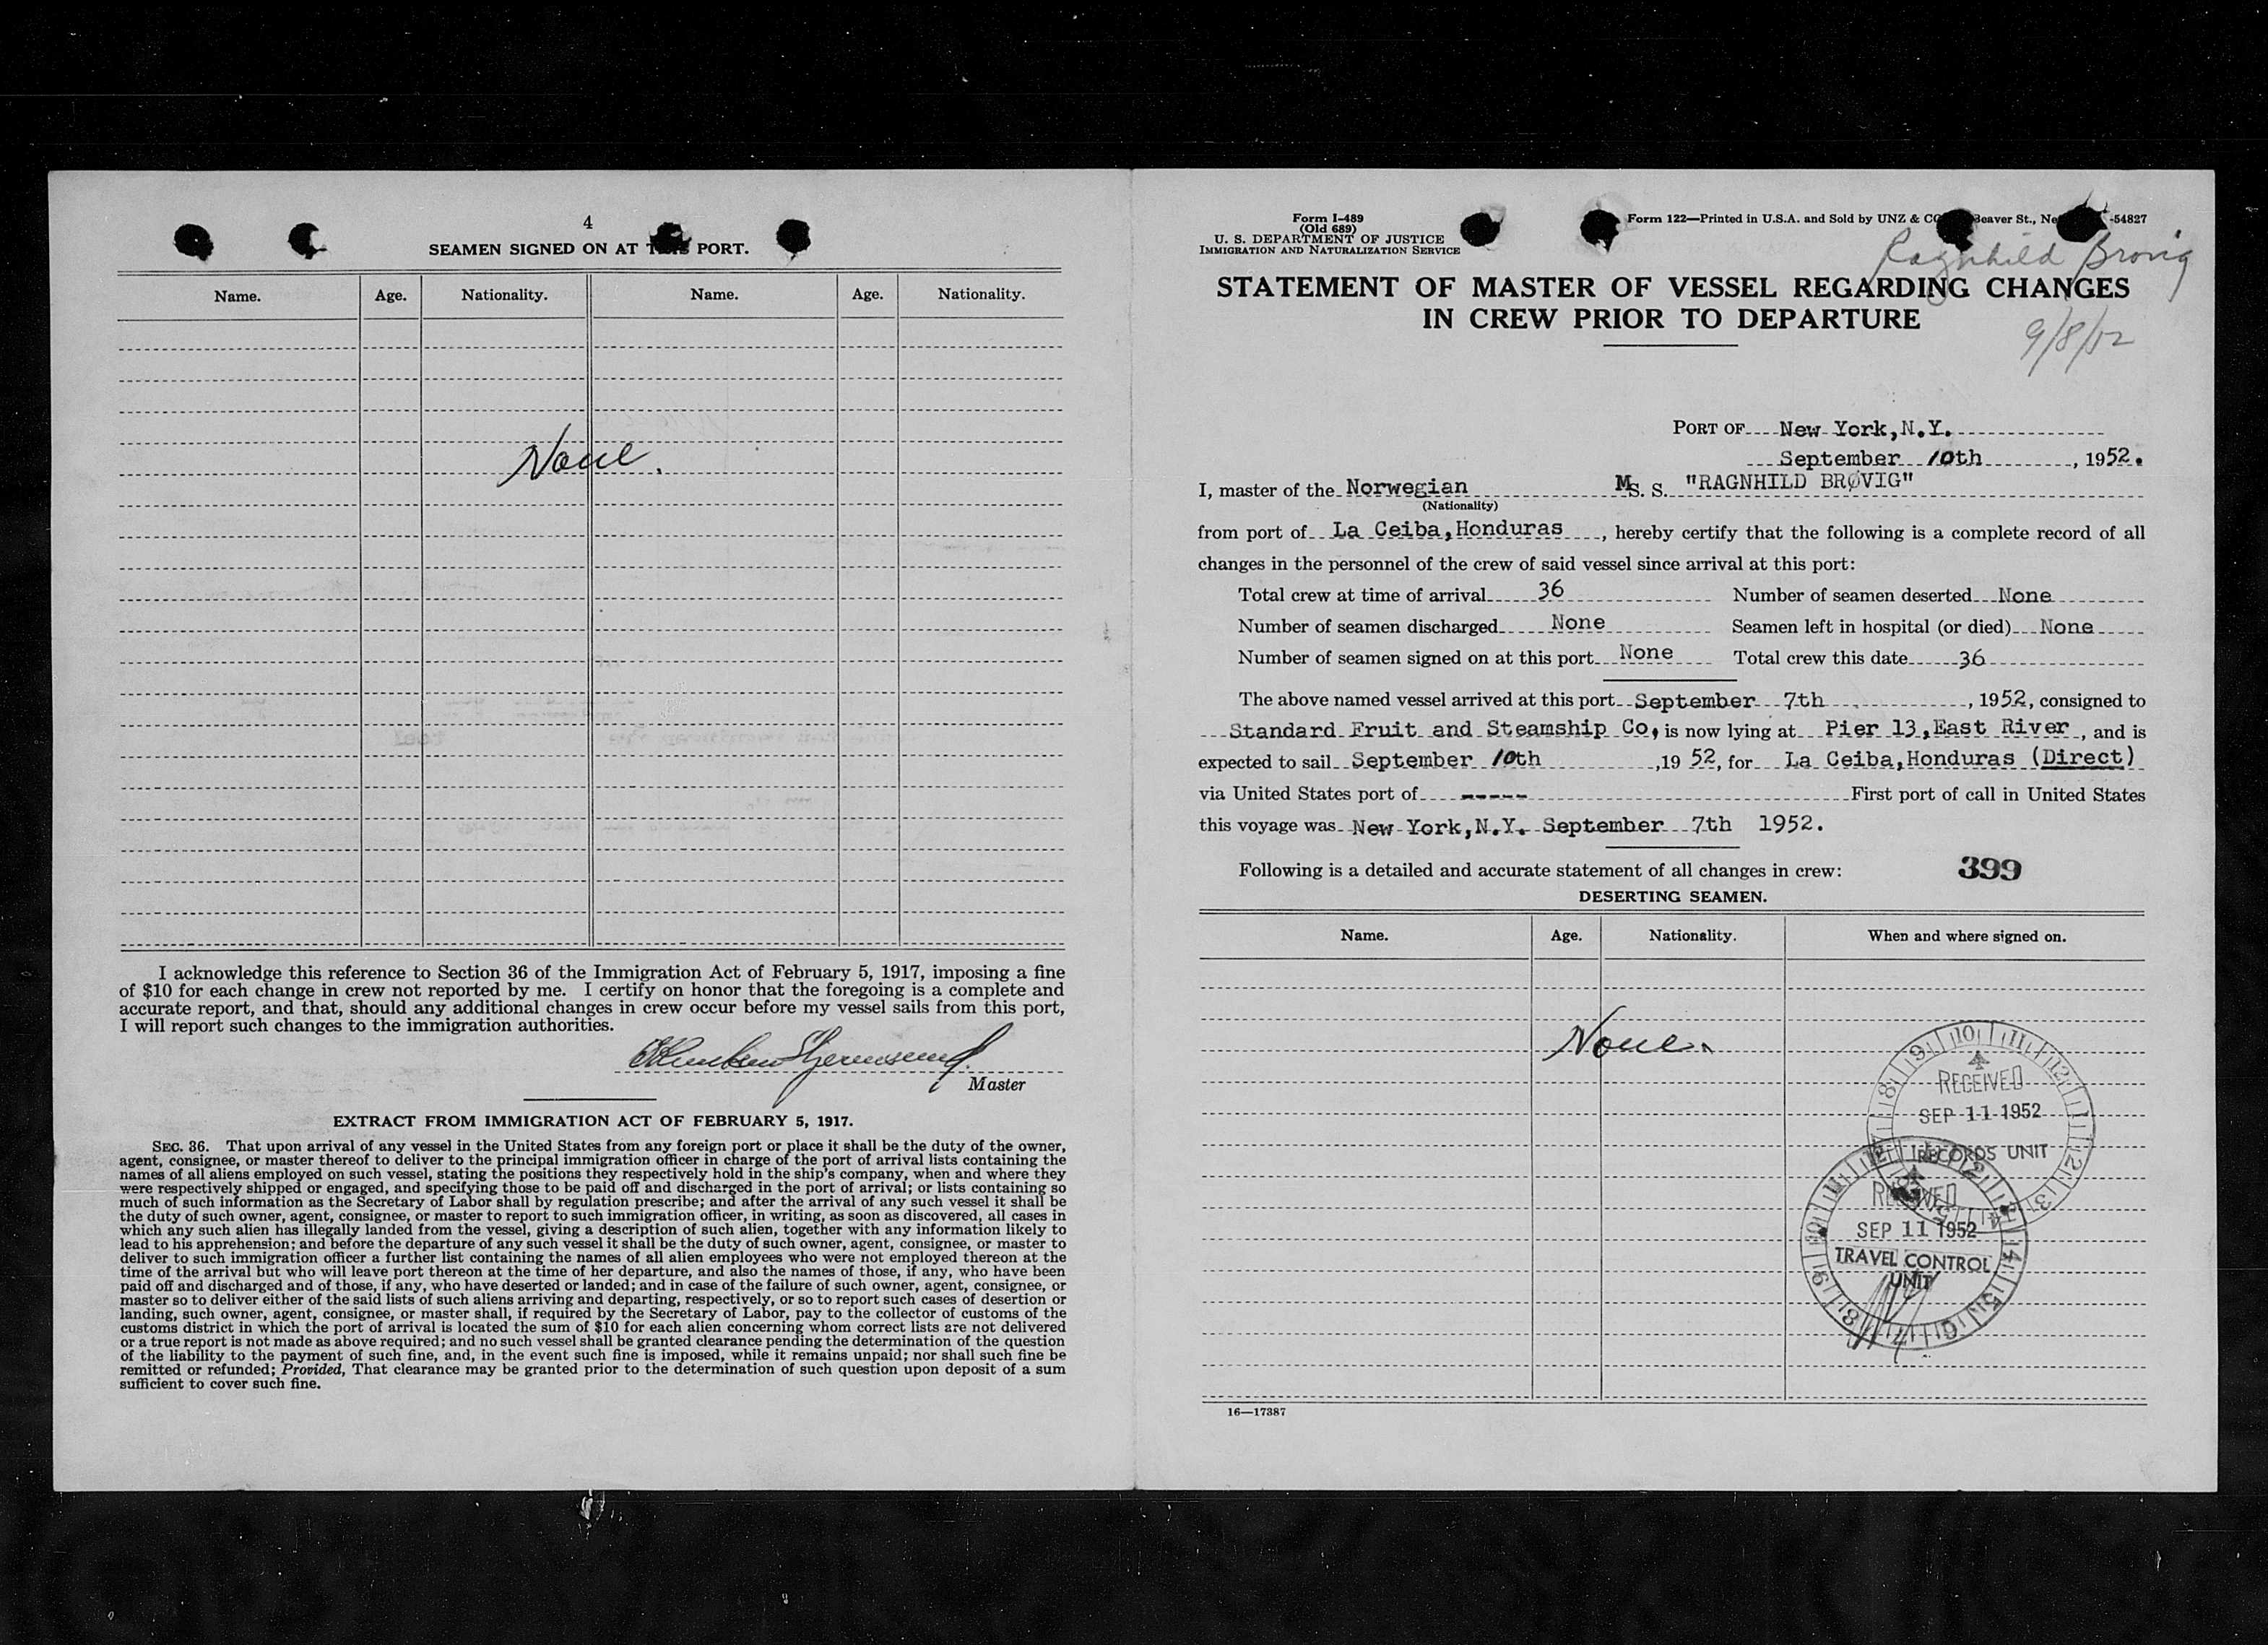 4
SEAMEN SIGNED ON AT THIS PORT.
Name. Age. Nationality. Name. Age. Nationality.
None.
I acknowledge this reference to Section 36 of the Immigration Act of February 5, 1917, imposing a fine
of $10 for each change in crew not reported by me. I certify on honor that the foregoing is a complete and
accurate report, and that, should any additional changes in crew occur before my vessel sails from this port,
I will report such changes to the immigration authorities.
Master
EXTRACT FROM IMMIGRATION ACT OF FEBRUARY 5, 1917.
SEC. 36. That upon arrival of any vessel in the United States from any foreign port or place it shall be the duty of the owner,
agent, consignee, or master thereof to deliver to the principal immigration officer in charge of the port of arrival lists containing the
names of all aliens employed on such vessel, stating the positions they respectively hold in the ship's company, when and where they
were respectively shipped or engaged, and specifying those to be paid off and discharged in the port of arrival; or lists containing so
much of such information as the Secretary of Labor shall by regulation prescribe; and after the arrival of any such vessel it shall be
the duty of such owner, agent, consignee, or master to report to such immigration officer, in writing, as soon as discovered, all cases in
which any such alien has illegally landed from the vessel, giving a description of such alien, together with any information likely to
lead to his apprehension; and before the departure of any such vessel it shall be the duty of such owner, agent, consignee, or master to
deliver to such immigration officer a further list containing the names of all alien employees who were not employed thereon at the
time of the arrival but who will leave port thereon at the time of her departure, and also the names of those, if any, who have been
paid off and discharged and of those, if any, who have deserted or landed; and in case of the failure of such owner, agent, consignee, or
master so to deliver either of the said lists of such aliens arriving and departing, respectively, or so to report such cases of desertion or
landing, such owner, agent, consignee, or master shall, if required by the Secretary of Labor, pay to the collector of customs of the
customs district in which the port of arrival is located the sum of $10 for each alien concerning whom correct lists are not delivered
or a true report is not made as above required; and no such vessel shall be granted clearance pending the determination of the question
of the liability to the payment of such fine, and, in the event such fine is imposed, while it remains unpaid; nor shall such fine be
remitted or refunded; Provided, That clearance may be granted prior to the determination of such question upon deposit of a sum
sufficient to cover such fine.
Form I-489
(Old 689)
U. S. DEPARTMENT OF JUSTICE
IMMIGRATION AND NATURALIZATION SERVICE
Form 122—Printed in U.S.A. and Sold by UNZ & CO Beaver St., Ne -54827
Ragnhild Brovig
STATEMENT OF MASTER OF VESSEL REGARDING CHANGES
IN CREW PRIOR TO DEPARTURE
9/8/52
PORT OF New York, N.Y.
September 10th, 1952.
I, master of the Norwegian M S. S. "RAGNHILD BRØVIG"
(Nationality)
from port of La Ceiba, Honduras, hereby certify that the following is a complete record of all
changes in the personnel of the crew of said vessel since arrival at this port:
Total crew at time of arrival 36 Number of seamen deserted None
Number of seamen discharged None Seamen left in hospital (or died) None
Number of seamen signed on at this port None Total crew this date 36
The above named vessel arrived at this port September 7th, 1952, consigned to
Standard Fruit and Steamship Co, is now lying at Pier 13, East River, and is
expected to sail September 10th, 19 52, for La Ceiba, Honduras (Direct)
via United States port of ----- First port of call in United States
this voyage was New York, N.Y. September 7th 1952.
Following is a detailed and accurate statement of all changes in crew: 399
DESERTING SEAMEN.
Name. Age. Nationality. When and where signed on.
None.
RECEIVED
SEP 11 1952
RECORDS UNIT
RECEIVED
SEP 11 1952
TRAVEL CONTROL
UNIT
16—17387